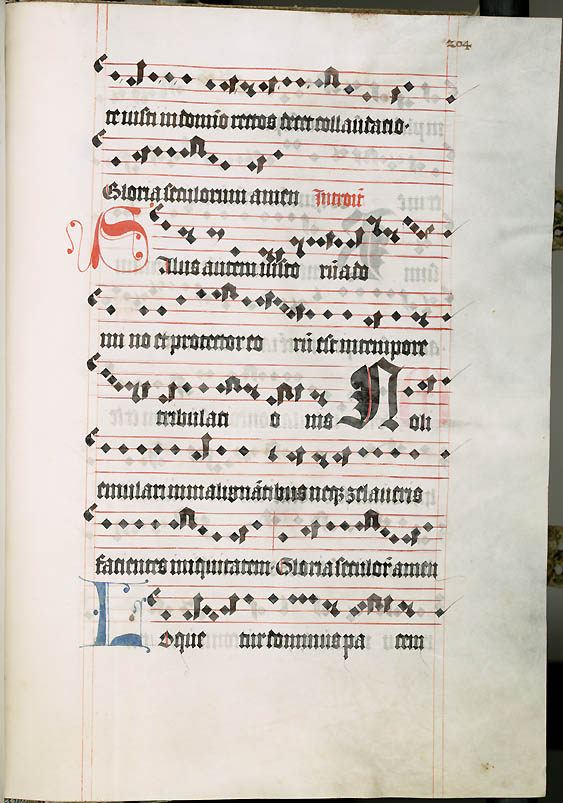 204
te iusti in dn̄o rectos decet collaudatio·
Gloria seculorum amen Introit͛
Salus autem iusto rū a do
mi no et protector eo rū est in tempore
tribulati o nis Noli
emulari in malignātibus neqꝫ zelaueris
facientes iniquitatem· Gloria seculoꝝ amen
Loque tur dominus pa cem